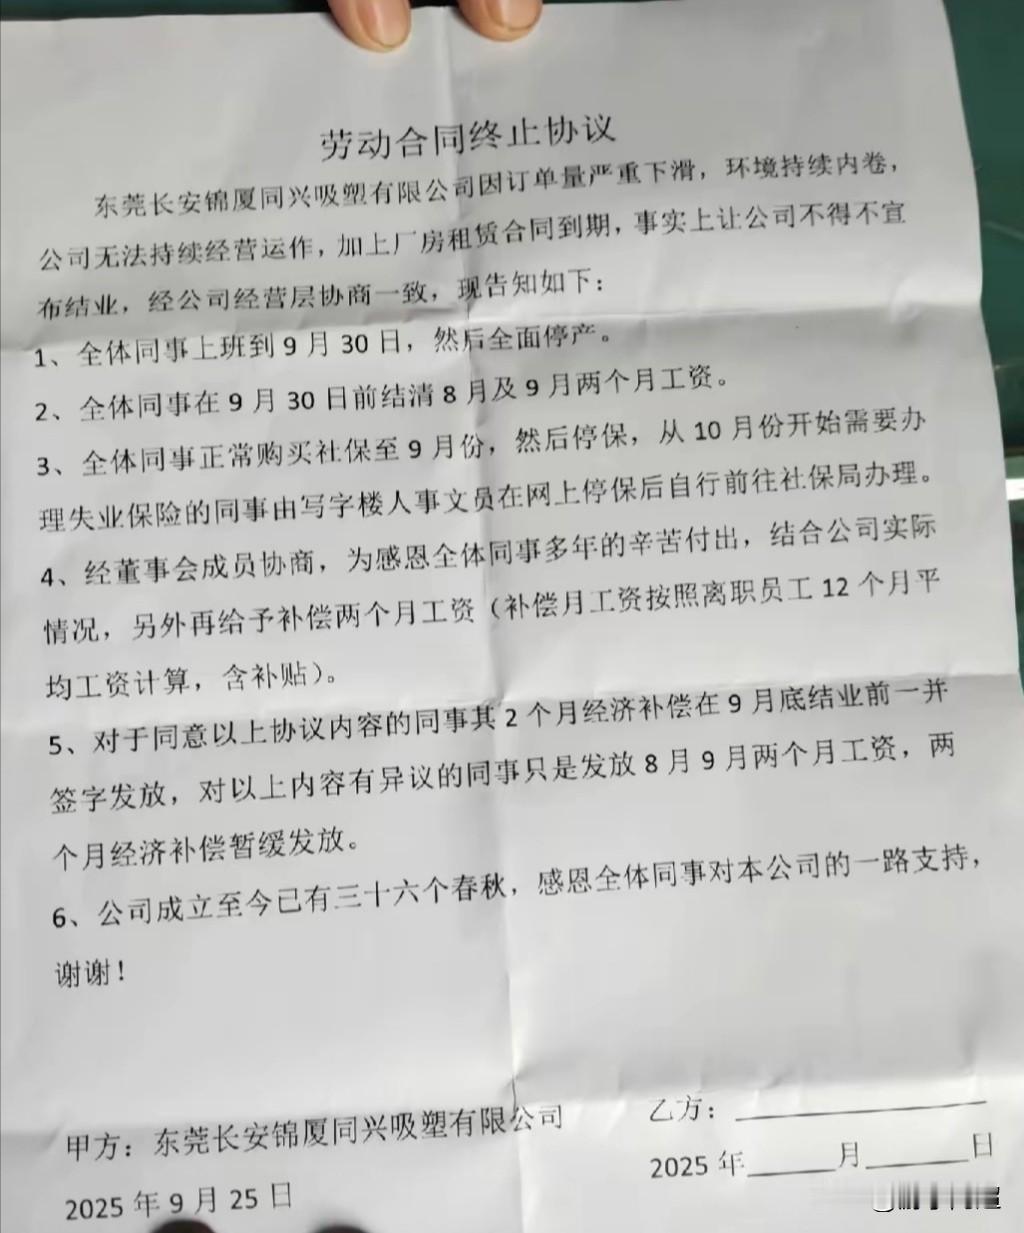 劳动合同终止协议
东莞长安锦厦同兴吸塑有限公司因订单量严重下滑，环境持续内卷，
公司无法持续经营运作，加上厂房租赁合同到期，事实上让公司不得不宣
布结业，经公司经营层协商一致，现告知如下：
1、全体同事上班到 9 月 30 日，然后全面停产。
2、全体同事在 9 月 30 日前结清 8 月及 9 月两个月工资。
3、全体同事正常购买社保至 9 月份，然后停保，从 10 月份开始需要办
理失业保险的同事由写字楼人事文员在网上停保后自行前往社保局办理。
4、经董事会成员协商，为感恩全体同事多年的辛苦付出，结合公司实际
情况，另外再给予补偿两个月工资（补偿月工资按照离职员工 12 个月平
均工资计算，含补贴）。
5、对于同意以上协议内容的同事其 2 个月经济补偿在 9 月底结业前一并
签字发放，对以上内容有异议的同事只是发放 8 月 9 月两个月工资，两
个月经济补偿暂缓发放。
6、公司成立至今已有三十六个春秋，感恩全体同事对本公司的一路支持，
谢谢！
甲方：东莞长安锦厦同兴吸塑有限公司
2025 年 9 月 25 日
乙方：
2025 年______月______日